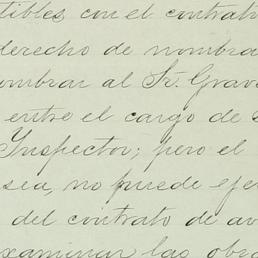 tibles con el contrato
derecho de nombra
ombrar al Sr. Grav
entre el cargo de
Inspector; pero el
sea, no puede eje
del contrato de av
xaminar las obr